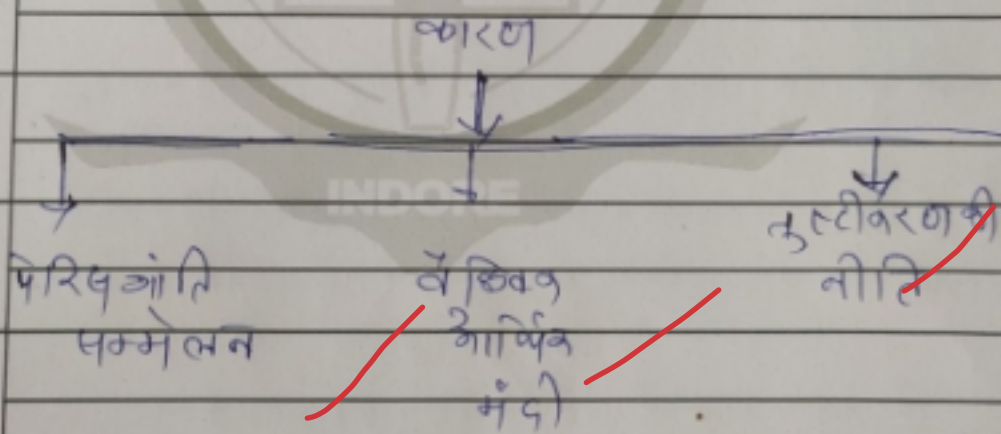 कारण
INDORE
पेरिस शांति
सम्मेलन
वैश्विक
आर्थिक
मंदी
तुष्टीकरण की
नीति